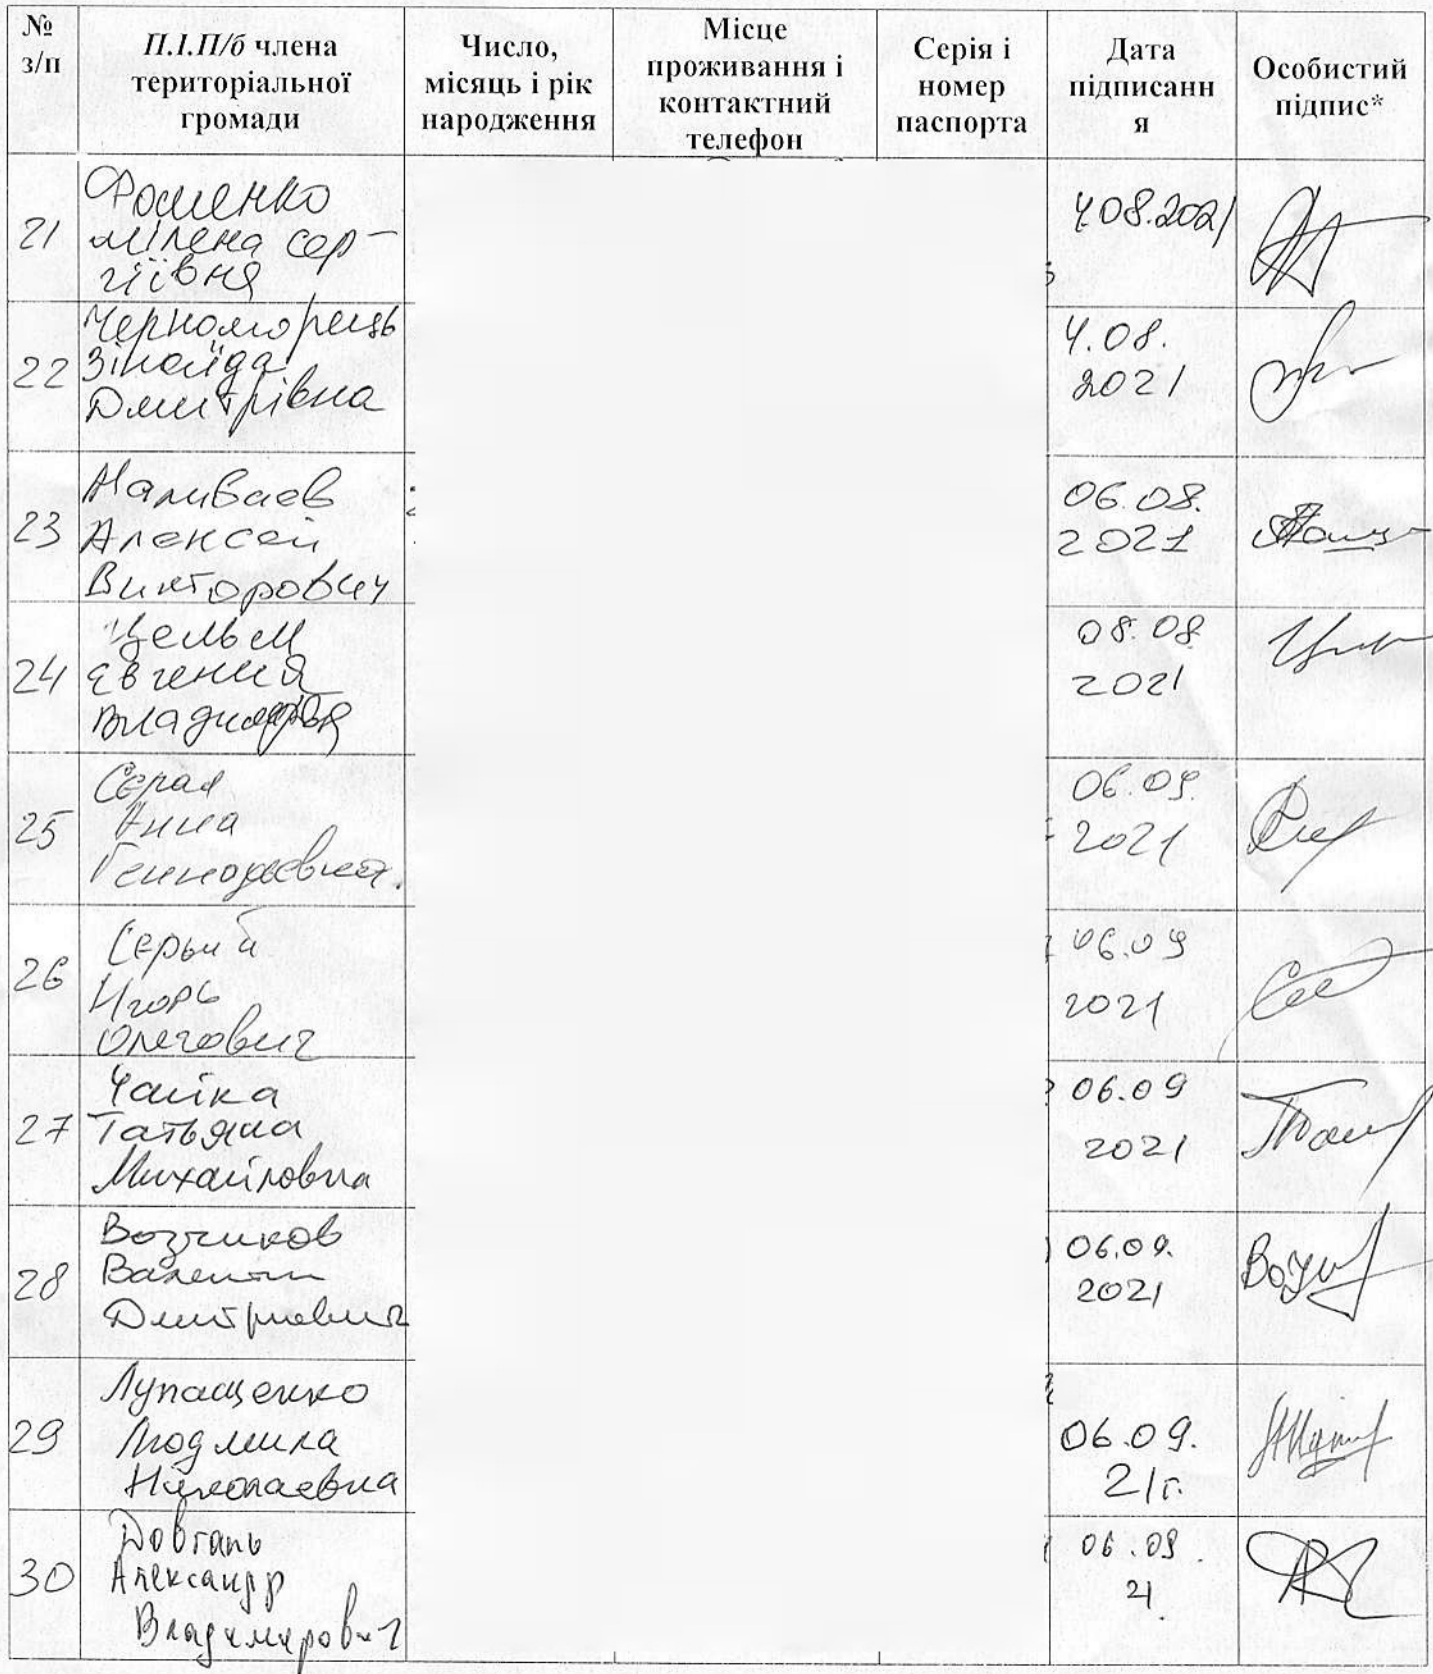 №
з/п
П.І.П/б члена
територіальної
громади
Число,
місяць і рік
народження
Місце
проживання і
контактний
телефон
Серія і
номер
паспорта
Дата
підписанн
я
Особистий
підпис*
21
Фоменко
Мілена Сер-
гіївна
4.08.2021
22
Черноморець
Зінаїда
Дмитрівна
4.08.
2021
23
Наливаев
Алексей
Викторович
06.08.
2021
24
Евгения
08.08
2021
25
Серая
Анна
Геннадьевна.
06.09.
2021
26
Серый
Игорь
Олегович
06.09
2021
27
Чайка
Татьяна
Михайловна
06.09
2021
28
Возчиков
Валентин
Дмитриевич
06.09.
2021
29
Лупащенко
Людмила
Николаевна
06.09.
21г.
30
Довгань
Александр
Владимирович
06.09.
21.